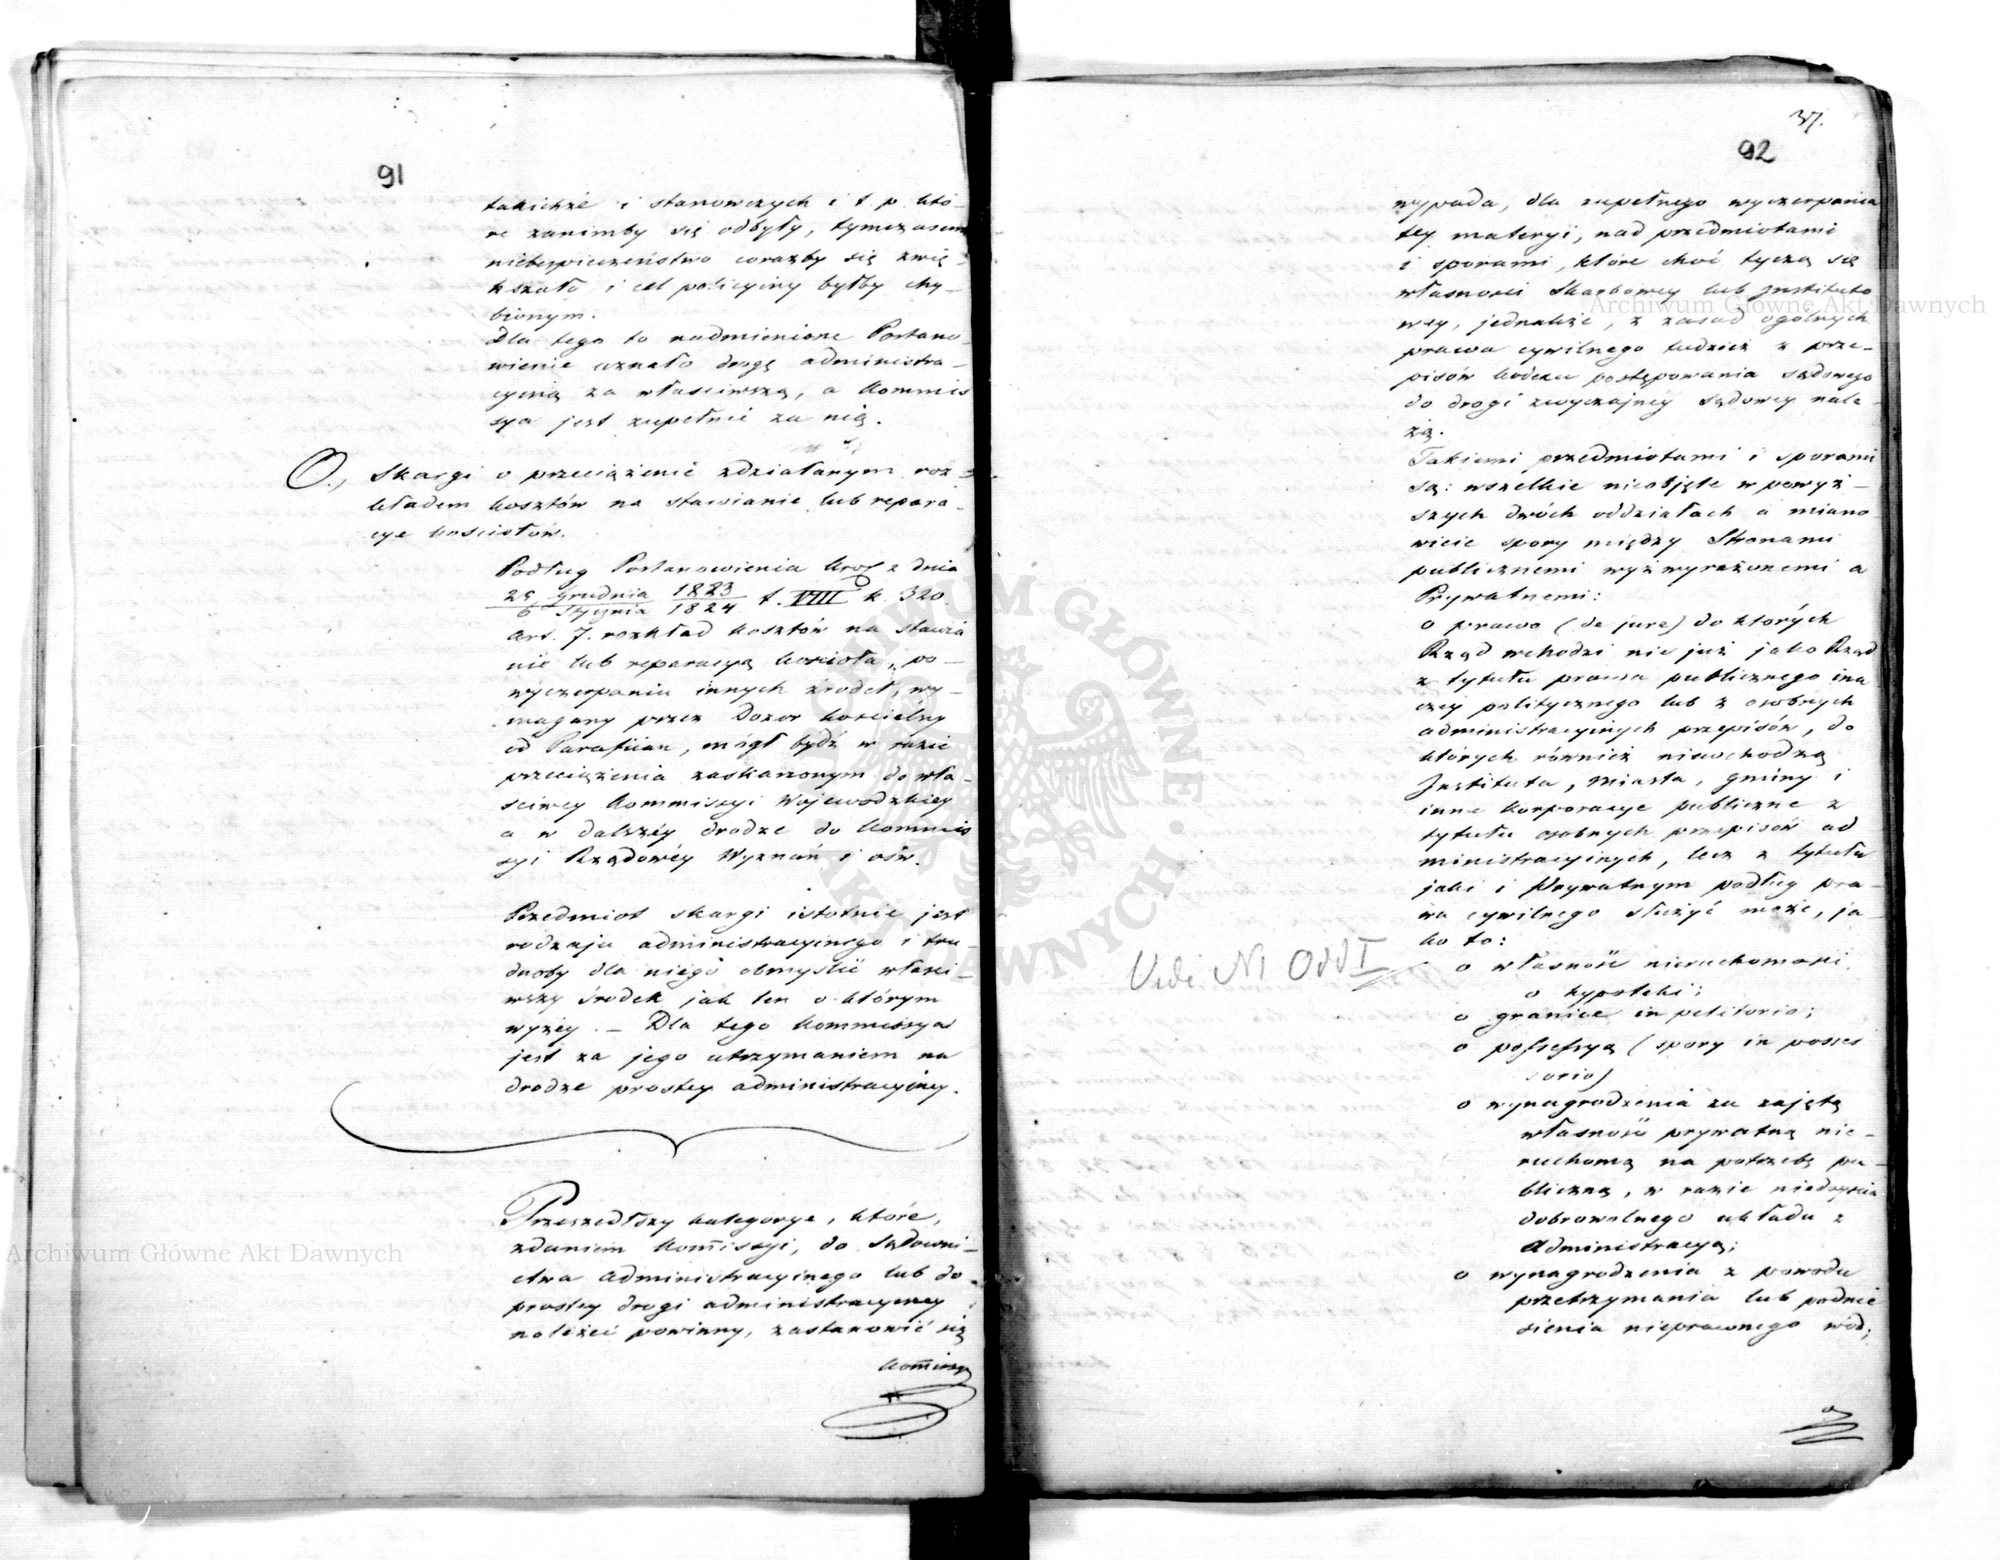 91
takichże i stanowczych i t. p. któ-
re zanimby się odbyły, tymczasem
niebezpieczeństwo corazby się zwię-
kszało i cel policyiny byłby chy-
bionym.
Dla tego to nadmienione Postano-
wienie uznało drogę administra-
cyiną za właściwszą, a Kommis
sya jest zupełnie za nią.
O., Skargi o przeciążenie zdziałanym roz-
kładem kosztów na stawianie lub repara-
cye kościołów.
Podług Postanowienia Król z dnia
25 Grudnia 1823 / 6 Stycznia 1824 t. VIII k. 320.
Art. 7. rozkład kosztów na stawia
nie lub reparacyą kościoła, po-
wyczerpaniu innych źrodeł, wy-
magany przez Dozor kościelny
od Parafiian, mógł bydź w razie
przeciążenia zaskarżonym do wła-
sciwey Kommissyi Wojewodzkiey
a w dalszéy drodze do Kommis
syi Rządowéy Wyznań i ośw.
Przedmiot skargi istotnie jest
rodzaju administracyinego i tru-
dnoby dla niego obmyslić właści-
wszy środek jak ten o którym
wyżey. - Dla tego Kommissya
jest za jego utrzymaniem na
drodze prostey administracyiney.
Przeszedłszy kategorye, które,
zdaniem Kom̃issyi, do Sądowni-
ctwa Administracyinego lub do
prostey drogi administracyiney
należeć powinny, zastanowić się
Kom̃issyi
37.
92
wypada, dla zupełnego wyczerpania
tey materyi, nad przedmiotami
i sporami, które choć tyczą się
własności Skarbowey lub Instituto
wey, jednakże, z zasad ogólnych
prawa cywilnego tudzież z prze-
pisów kodexu postępowania sądowego
do drogi zwyczajney sądowey nale-
żą.
Takiemi przedmiotami i sporami
są: wszelkie nieobjęte w powyż-
szych dwóch oddziałach a miano
wicie spory między Stronami
publicznemi wyż wyrażonemi a
Prywatnemi:
o prawo (de jure) do których
Rząd wchodzi nie już jako Rząd
z tytułu prawa publicznego ina
czey politycznego lub z osobnych
administracyinych przepisów, do
których również niewchodzą
Instituta, Miasta, Gminy i
inne korporacye publiczne z
tytułu osobnych przepisów ad
ministracyinych, lecz z tytułu
jaki i Prywatnym podług pra-
wa cywilnego służyć może, ja-
ko to:
Vidi N1 Odd I
o własność nieruchomości
o hypoteki;
o granice in petitorio;
o possessyą (spory in posses
sorio)
o wynagrodzenia za zajętą
własność prywatną nie-
ruchomą na potrzebę pu-
bliczną, w razie niedoyścia
dobrowolnego układu z
Administracyą;
o wynagrodzenia z powodu
przetrzymania lub podnie
sienia nieprawnego wód;
Archiwum Główne Akt Dawnych
Archiwum Główne Akt Dawnych
ARCHIWUM GŁÓWNE AKT DAWNYCH